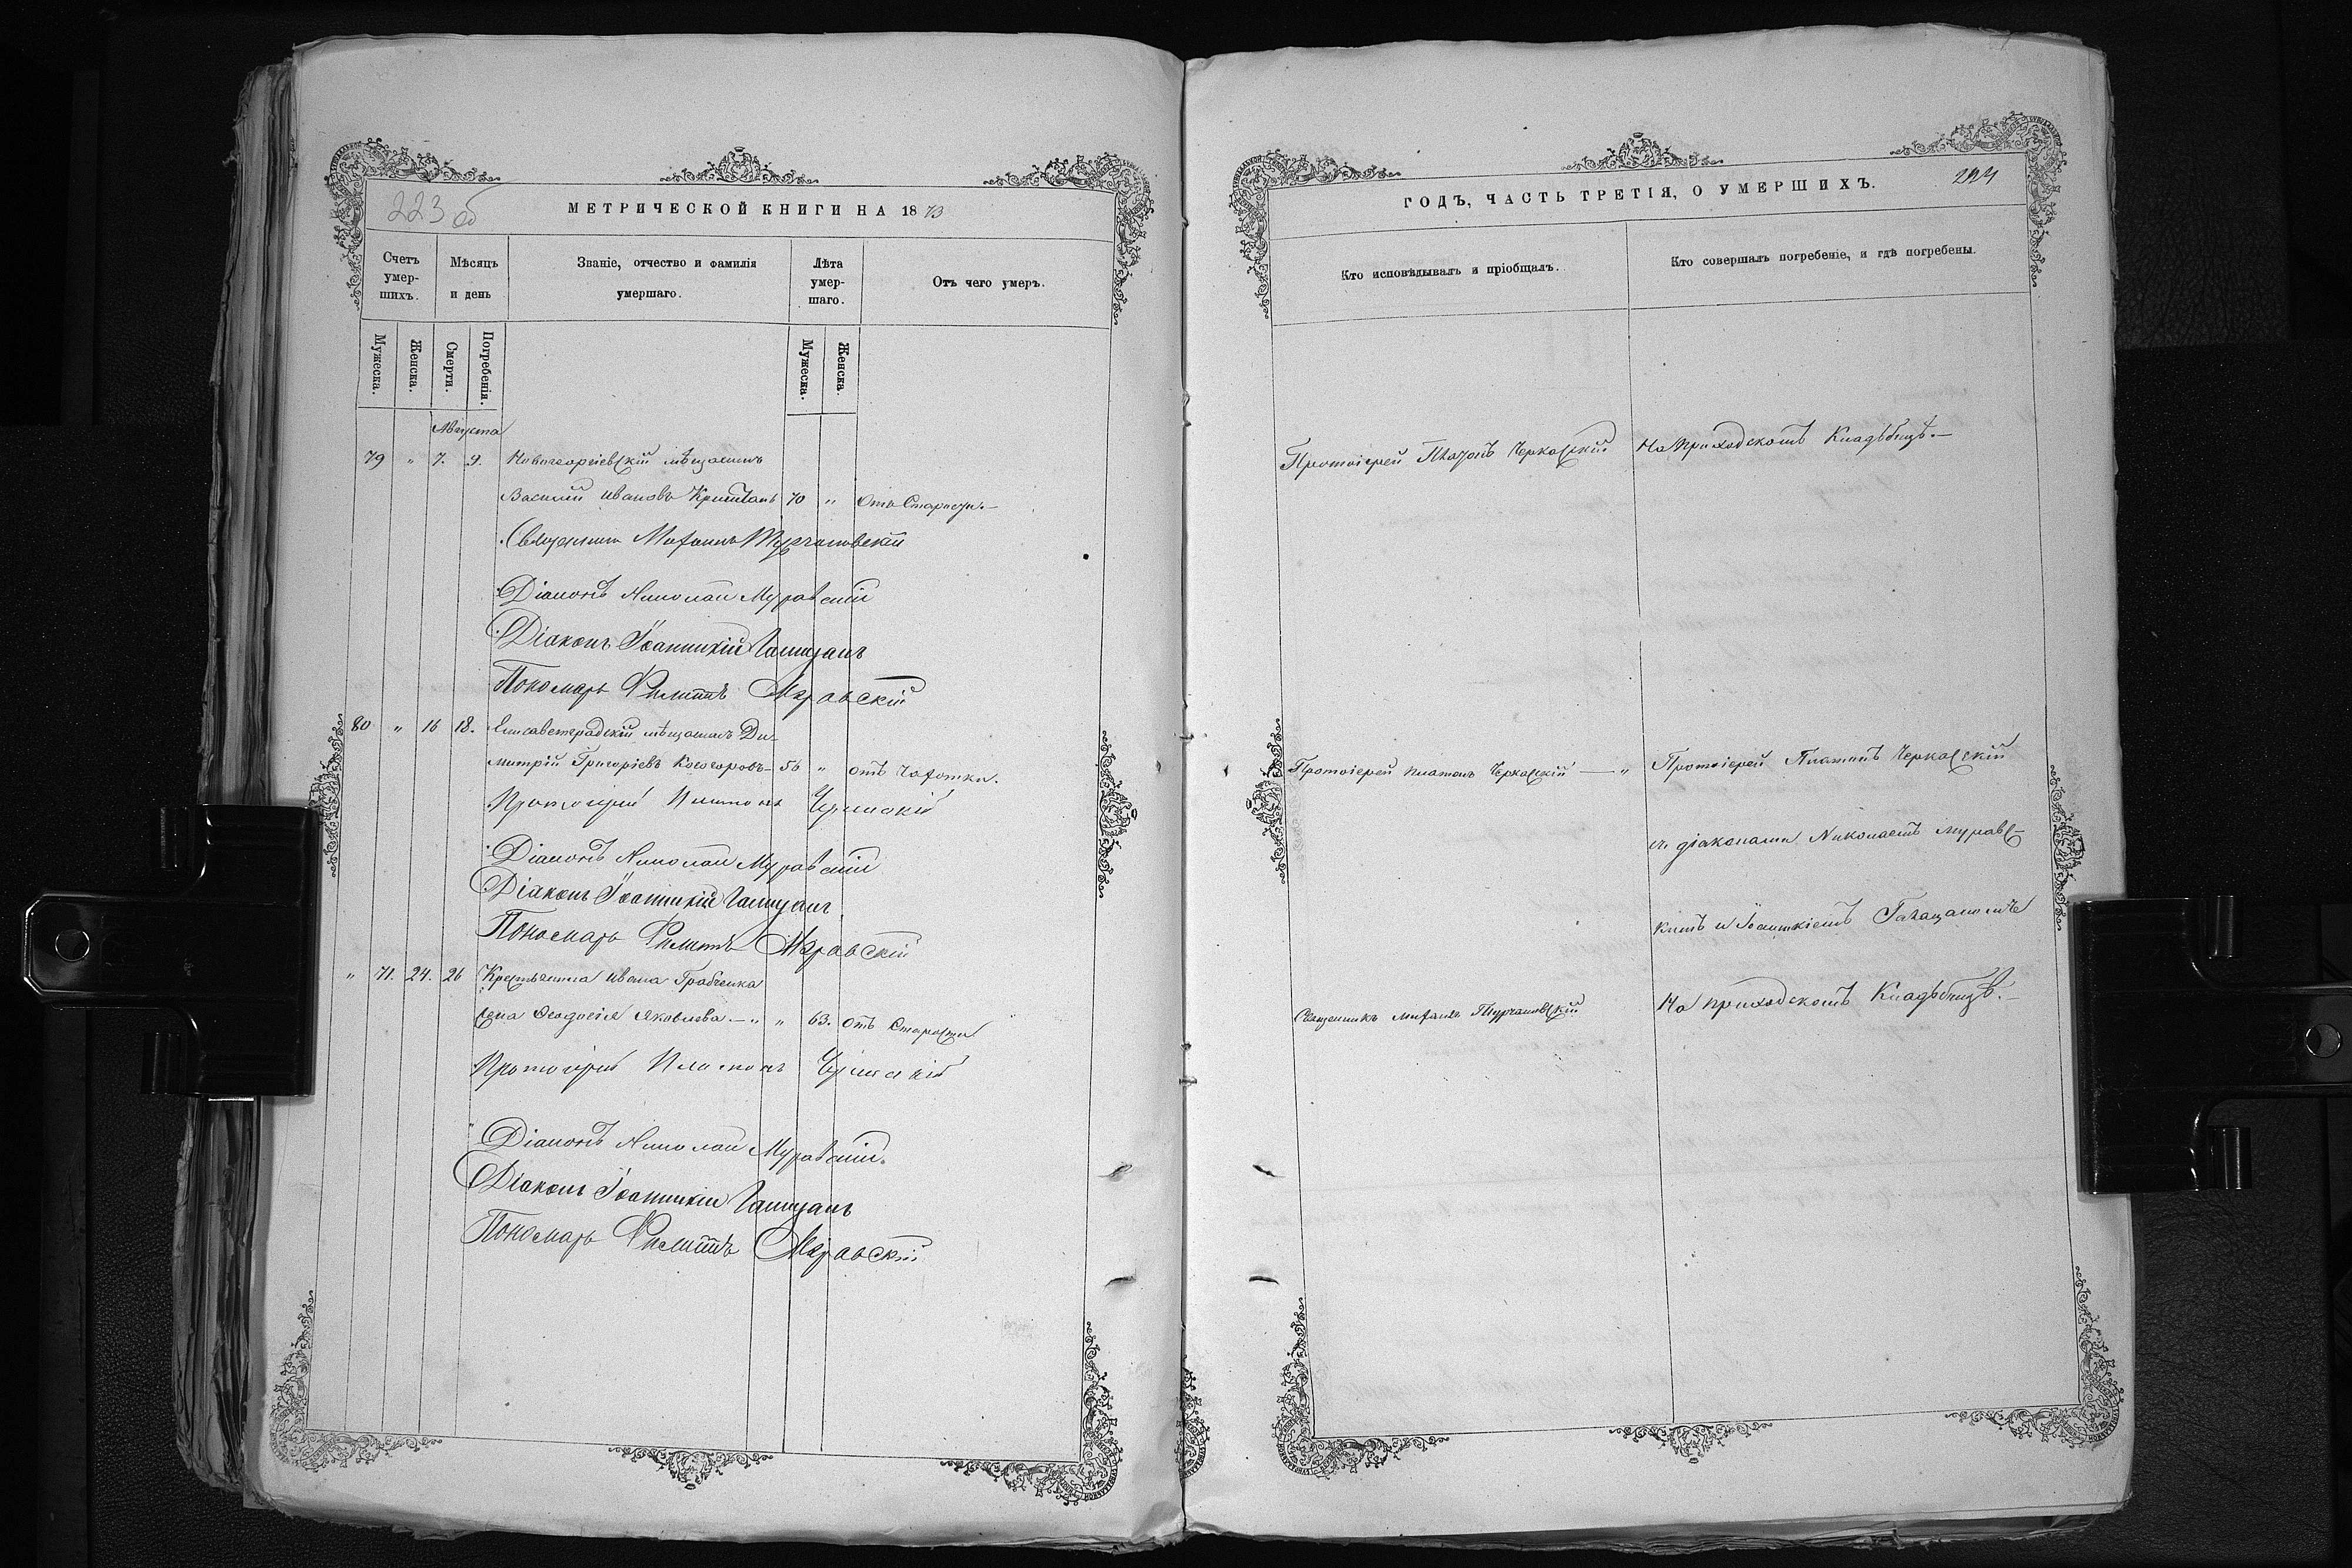 223 об
МЕТРИЧЕСКОЙ КНИГИ НА 1873
Счетъ умер-шихъ.
Мѣсяцъ и день
Званіе, отчество и фамилія умершаго.
Лѣта умер-шаго.
Отъ чего умеръ.
Мужеска.
Женска.
Смерти.
Погребенія.
Мужеска.
Женска.
Августа
79 " 7. 9. Новогеоргіевскій мѣщанинъ
Василій Ивановъ Криштапъ 70 " Отъ Старости.—
Священникъ Матѳій Турчановскій
Діаконъ Николай Муравскій
Діаконъ Іоанникій
Пономарь Филиппъ Муравскій
80 " 16 18. Елисаветградскій мѣщанинъ Ди-
митрій Григоріевъ Косогоровъ— 56 " отъ Чахотки.
Протоіерей Платонъ Черкаскій
Діаконъ Николай Муравскій
Діаконъ Іоанникій
Пономарь Филиппъ Муравскій
" 71. 24. 26 Крестьянина Ивана Грабченка
жена Ѳеодосія Яковлева—" " 63. отъ Старости
Протоіерей Платонъ Черкаскій
Діаконъ Николай Муравскій.
Діаконъ Іоанникій
Пономарь Филиппъ Муравскій
ГОДЪ, ЧАСТЬ ТРЕТІЯ, О УМЕРШИХЪ.
224
Кто исповѣдывалъ и пріобщалъ.
Кто совершалъ погребеніе, и гдѣ погребены.
Протоіерей Платонъ Черкаскій
На приходскомъ Кладбищѣ.—
Протоіерей Платонъ Черкаскій —"
Протоіерей Платонъ Черкаскій
съ діаконами Николаемъ Муравс-
кимъ и Іоанникіемъ
Священникъ Турчановскій
На приходскомъ Кладбищѣ.—